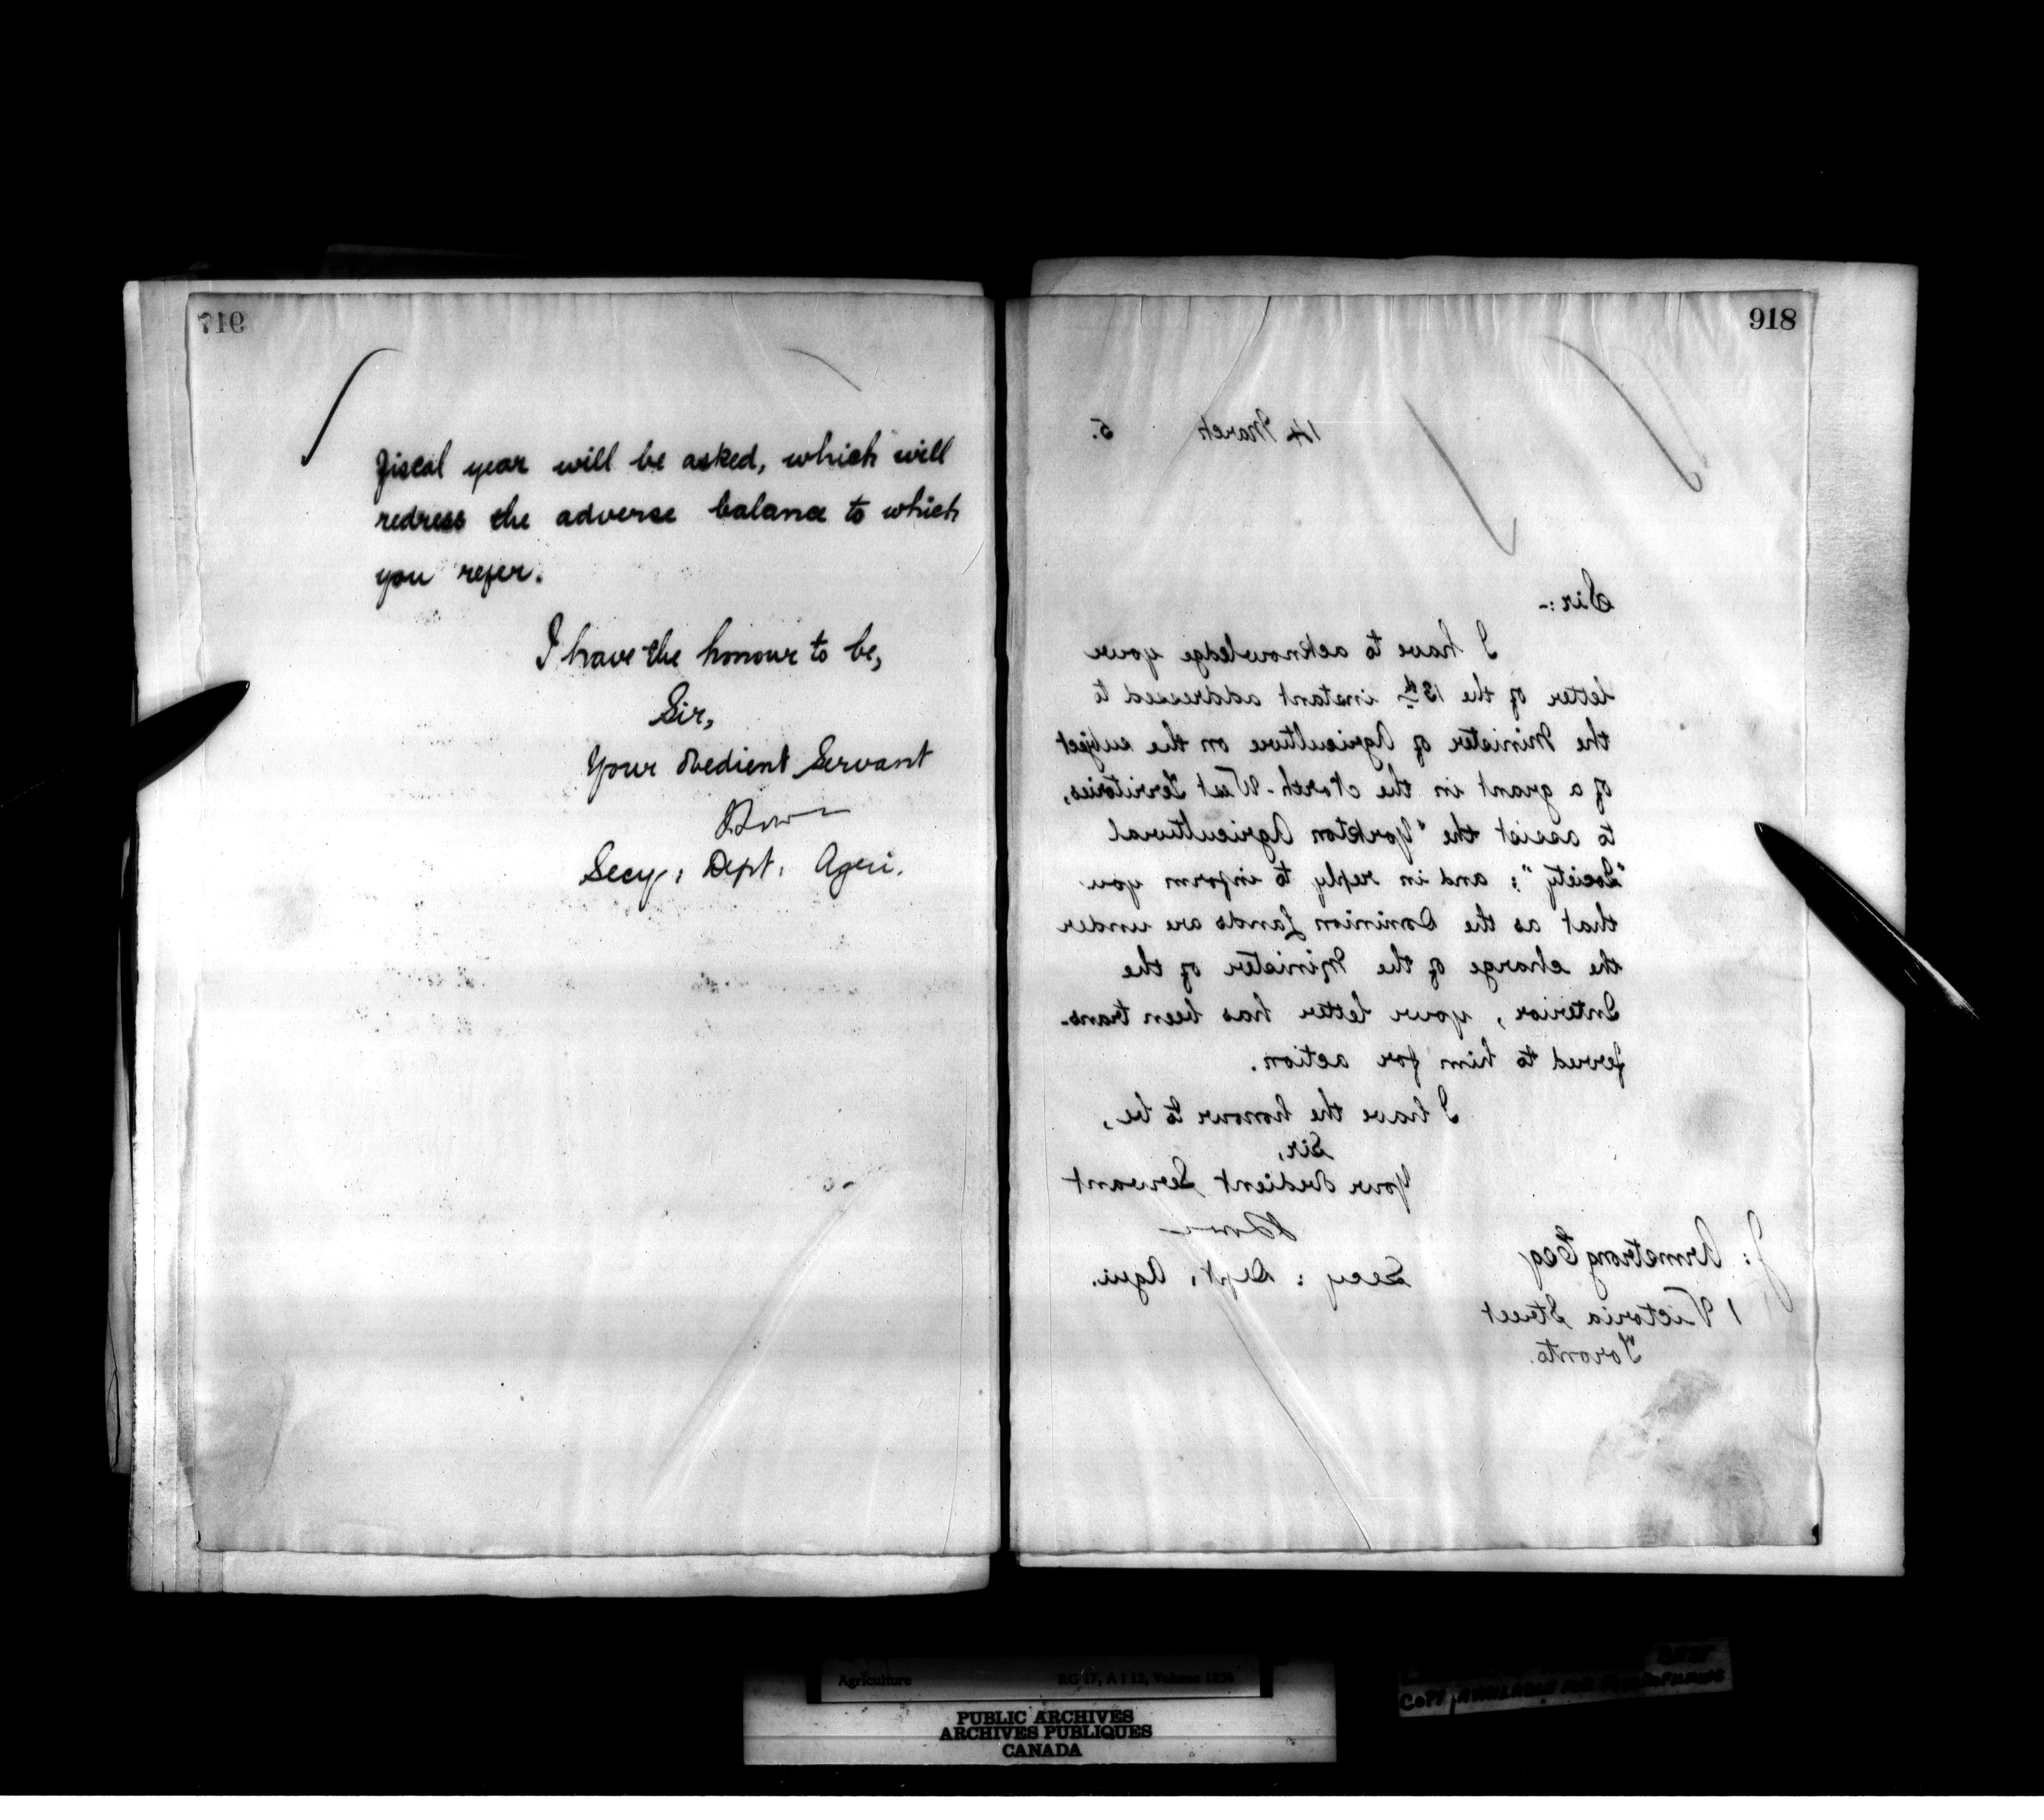 917
fiscal year will be asked, which will
redress the adverse balance to which
you refer.
I have the honour to be,
Sir,
Your obedient Servant
Secy: Dept. Agri.
918
14 March 5.
Sir:-
I have to acknowledge your
letter of the 13th instant addressed to
the Minister of Agriculture on the subject
of a grant in the North-West Territories,
to assist the "Yorkton Agricultural
"Society"; and in reply to inform you
that as the Dominion Lands are under
the charge of the Minister of the
Interior, your letter has been trans-
ferred to him for action.
I have the honour to be,
Sir,
Your obedient Servant
Secy: Dept. Agri.
J: Armstrong Esq
1 Victoria Street
Toronto.
Agriculture RG 17, A I 12, Volume 1634
PUBLIC ARCHIVES
ARCHIVES PUBLIQUES
CANADA
BEST
COPY AVAILABLE FOR MICROFILMING